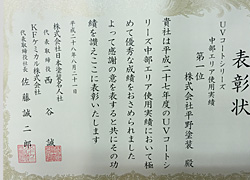 表彰状
UVコートシリーズ
中部エリア使用実績
第一位
株式会社平野塗装 殿
貴社は平成二十七年度のUVコートシ
リーズ中部エリア使用実績において極
めて優秀な成績をおさめられました
よって感謝の意を表すると共にその功
績を讃えここに表彰いたします
平成二十八年八月二十一日
株式会社日本塗装名人社
代表取締役 西谷 誠
KFケミカル株式会社
代表取締役社長 佐藤誠二郎